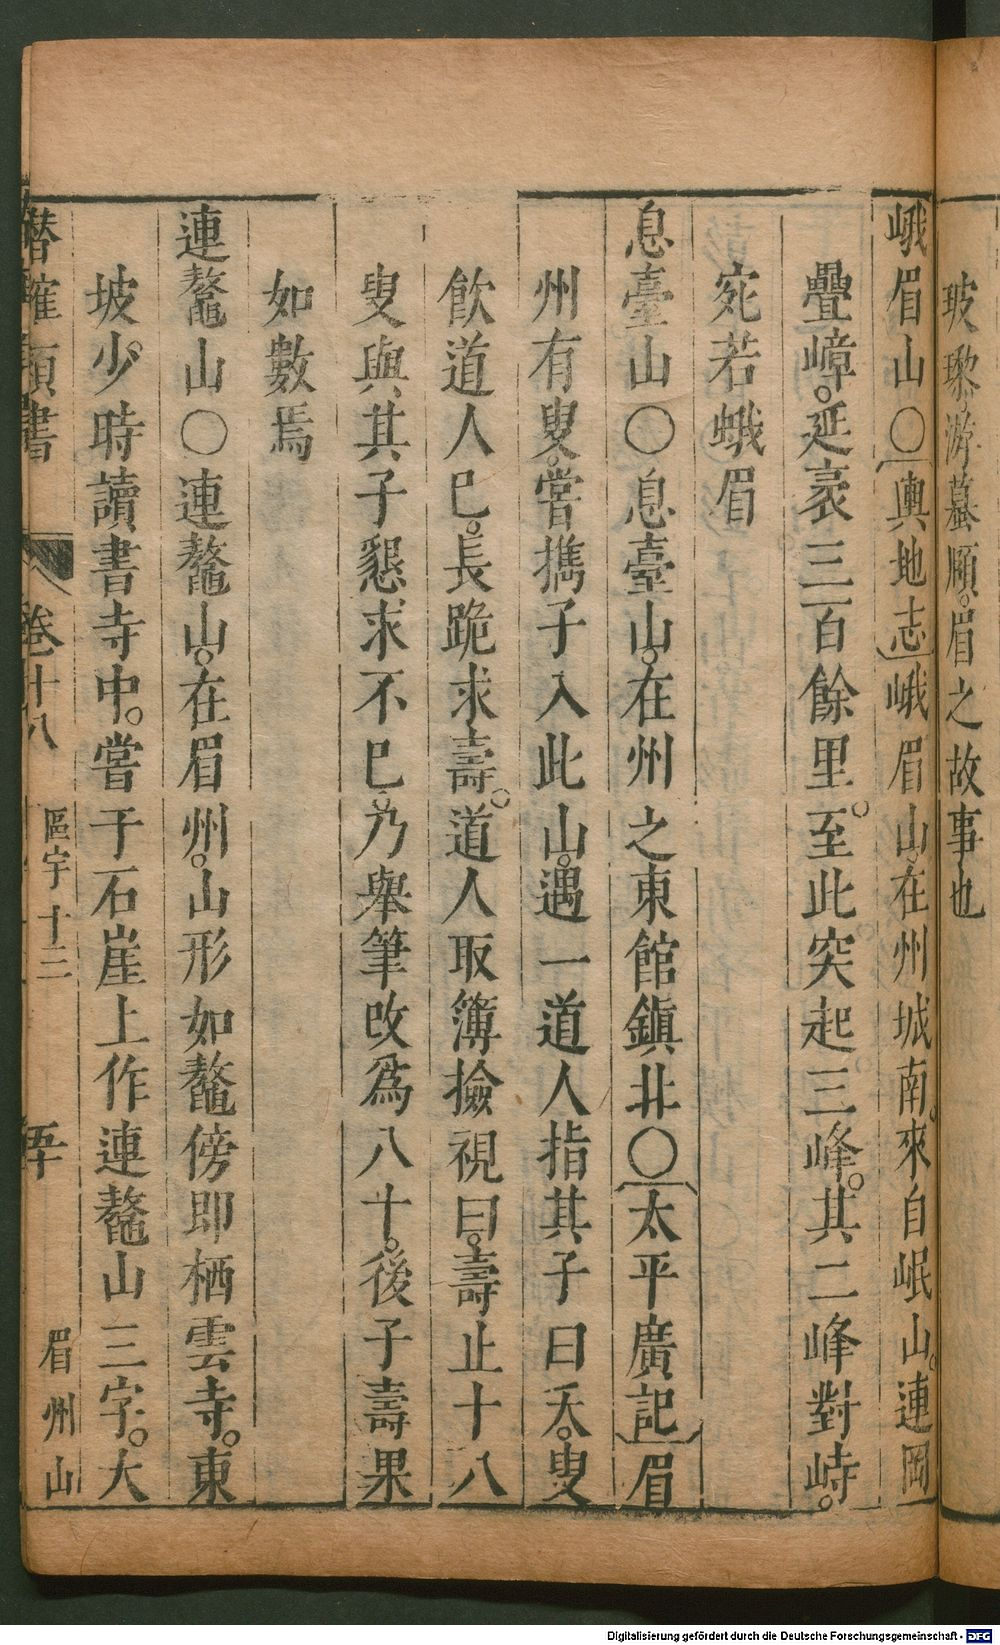 玻瓈游蟇頤。眉之故事也
峨眉山○輿地志峨眉山。在州城南。來自岷山。連岡
疊嶂。延袤三百餘里。至此突起三峰。其二峰對峙。
宛若蛾眉
息臺山○息臺山。在州之東館鎮北○太平廣記眉
州有叟。嘗攜子入此山。遇一道人指其子曰夭。叟
飲道人巳。長跪求壽。道人取簿撿視曰。壽止十八
叟與其子懇求不巳。乃舉筆改為八十。後子壽果
如數焉
連鼇山○連鼇山。在眉州。山形如鼇傍即栖雲寺。東
坡少時讀書寺中。嘗于石崖上作連鼇山三字。大
潛確類書 卷十八 區宇十三 眉州山
Digitalisierung gefördert durch die Deutsche Forschungsgemeinschaft - DFG